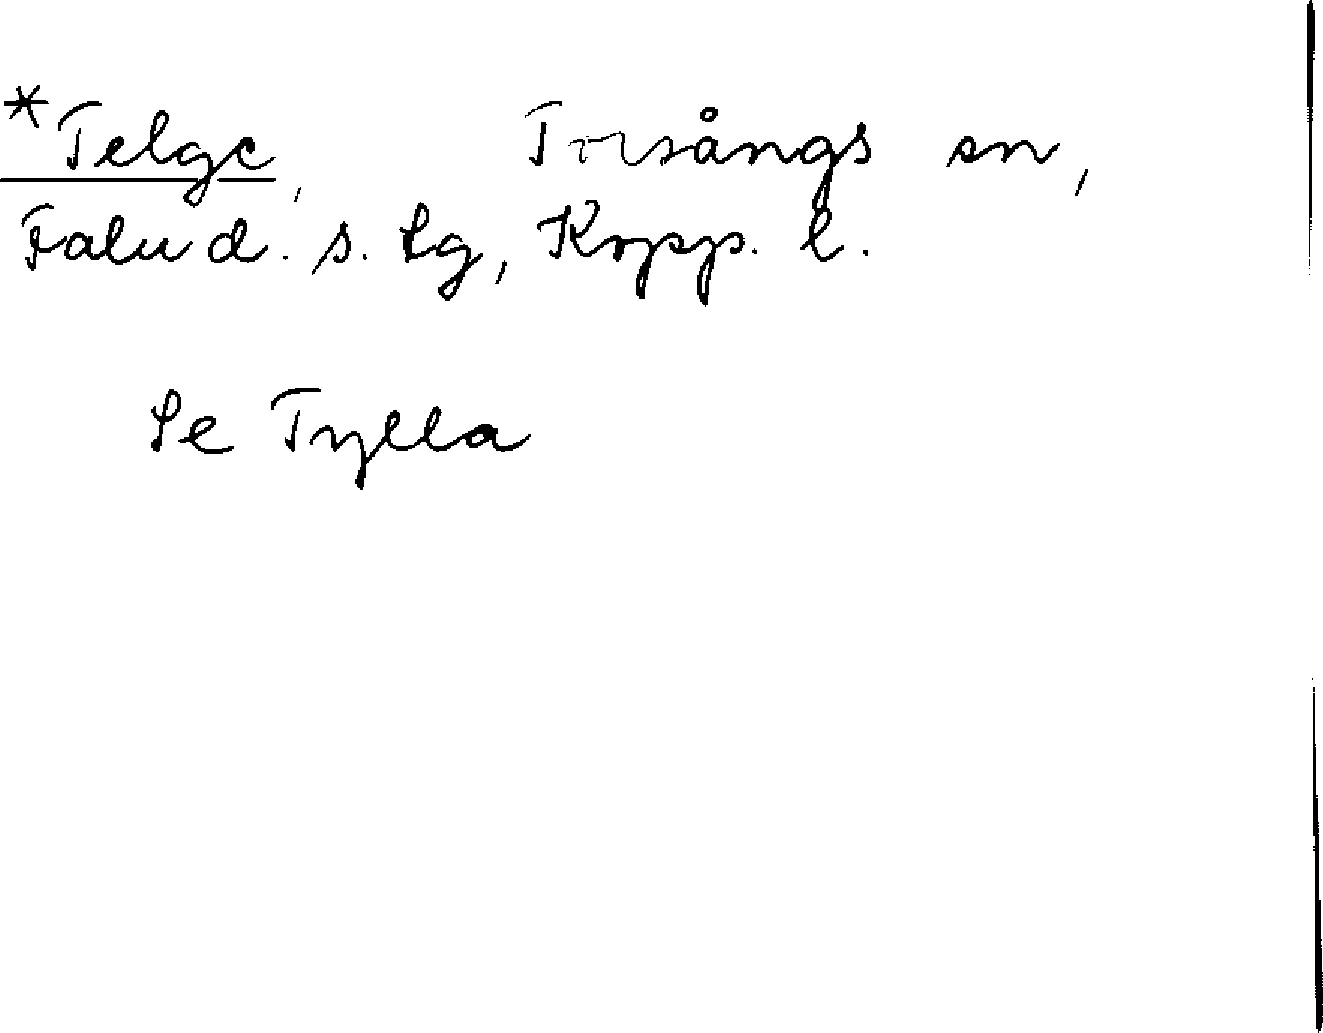 *Telge, Torsångs sn,
Falu d. s. tg, Kopp. l.
Se Tylla